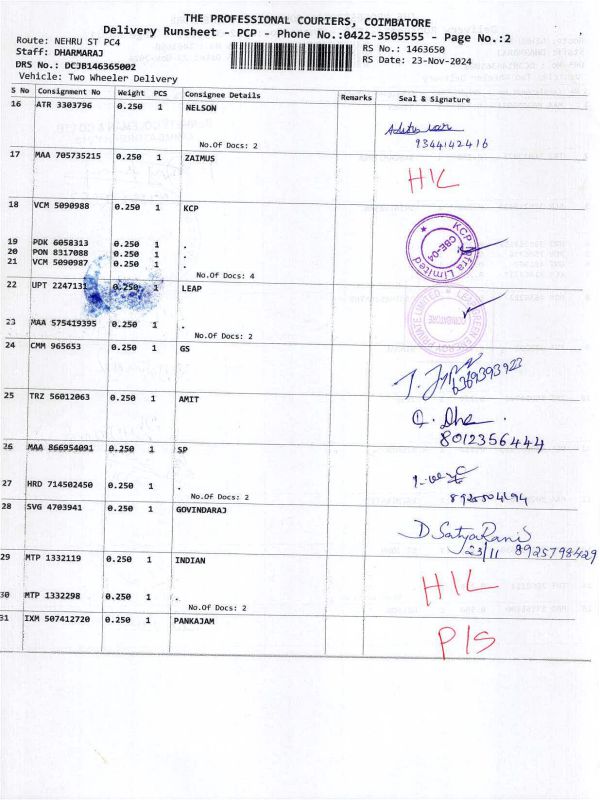 THE PROFESSIONAL COURIERS, COIMBATORE
Delivery Runsheet - PCP - Phone No.:0422-3505555 - Page No.:2
Route: NEHRU ST PC4 RS No.: 1463650
Staff: DHARMARAJ RS Date: 23-Nov-2024
DRS No.: DCJB146365002
Vehicle: Two Wheeler Delivery
S No Consignment No Weight PCS Consignee Details Remarks Seal & Signature
16 ATR 3303796 0.250 1 NELSON
No.Of Docs: 2 9344142416
17 MAA 705735215 0.250 1 ZAIMUS
H/L
18 VCM 5090988 0.250 1 KCP
KCP Infra Limited
CBE-04
19 PDK 6058313 0.250 1 .
20 PON 8317088 0.250 1 .
21 VCM 5090987 0.250 1 .
No.Of Docs: 4
22 UPT 2247131 0.250 1 LEAP
PRIVATE LIMITED
COIMBATORE
23 MAA 575419395 0.250 1 .
No.Of Docs: 2
24 CMM 965653 0.250 1 GS
6369393923
25 TRZ 56012063 0.250 1 AMIT
8012356444
26 MAA 866954091 0.250 1 SP
27 HRD 714502450 0.250 1 .
No.Of Docs: 2
28 SVG 4703941 0.250 1 GOVINDARAJ
D SatyaRani
23/11 8925798429
29 MTP 1332119 0.250 1 INDIAN
H/L
30 MTP 1332298 0.250 1 .
No.Of Docs: 2
31 IXM 507412720 0.250 1 PANKAJAM
P/S